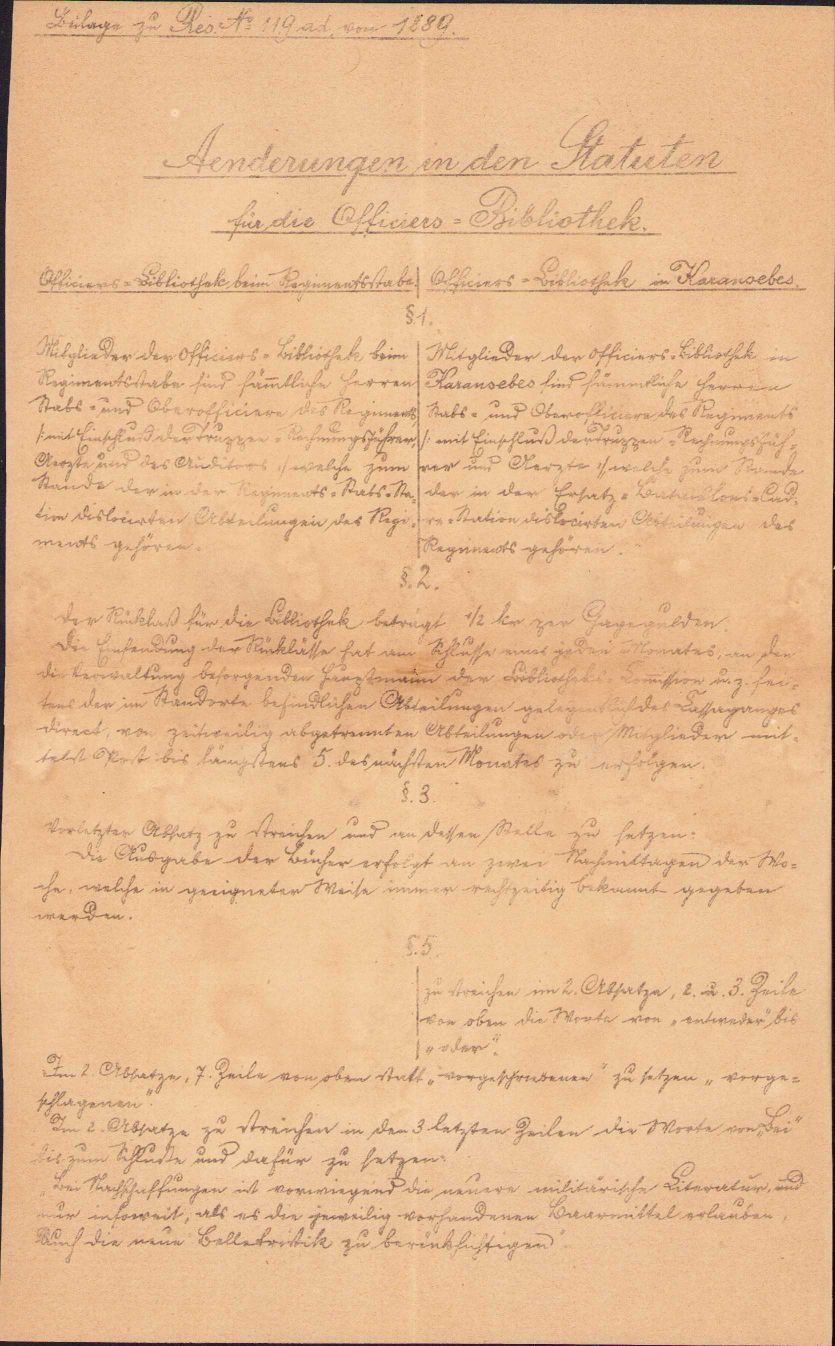 Beilage zu Res. No 119 ad. vom 1889.
Aenderungen in den Statuten
für die Officiers-Bibliothek.
Officiers-Bibliothek beim Regimentsstabe.
§ 1.
Mitglieder der Officiers-Bibliothek beim
Regimentsstabe sind sämmtliche Herren
Stabs- und Oberofficiere des Regiments
/: mit Einschluß der Truppen-Rechnungsführer,
Aerzte und des Auditors :/ welche zum
Stande der in der Regiments-Stabs-Sta-
tion dislocirten Abteilungen des Regi-
ments gehören.
Officiers-Bibliothek in Karansebes.
Mitglieder der Officiers-Bibliothek in
Karansebes sind sämmtliche Herren
Stabs- und Oberofficiere des Regiments
/: mit Einschluß der Truppen-Rechnungsfüh-
rer und Aerzte :/, welche zum Stande
der in der Ersatz-Bataillons-Cad-
re-Station dislocirten Abteilungen des
Regiments gehören.
§. 2.
Der Rücklaß für die Bibliothek beträgt 1/2 kr per Gagegulden.
Die Einsendung der Rücklässe hat am Schlusse eines jeden Monates, an den
die Verwaltung besorgenden Hauptmann der Bibliotheks-Comission u. z. sei-
tens der im Standorte befindlichen Abteilungen gelegentlich des Cassaganges
direct, von zeitweilig abgetrennten Abteilungen oder Mitglieder mit-
telst Post bis längstens 5. des nächsten Monates zu erfolgen.
§. 3.
Vorletzter Absatz zu streichen und an dessen Stelle zu setzen:
Die Ausgabe der Bücher erfolgt an zwei Nachmittagen der Wo-
che, welche in geeigneter Weise immer rechtzeitig bekannt gegeben
werden.
§. 5.
zu streichen im 2. Absatze, 2. u. 3. Zeile
von oben die Worte von „entweder" bis
„oder".
Im 2. Absatze, 7. Zeile von oben statt „vorgeschriebenen" zu setzen „vorge-
schlagenen".
Im 2. Absatze zu streichen in den 3 letzten Zeilen die Worte von „Bei"
bis zum Schlusse und dafür zu setzen:
„Bei Nachschaffungen ist vorwiegend die neuere militärische Literatur, und
nur insoweit, als es die jeweilig vorhandenen Baarmittel erlauben,
auch die neue Belletristik zu berücksichtigen".